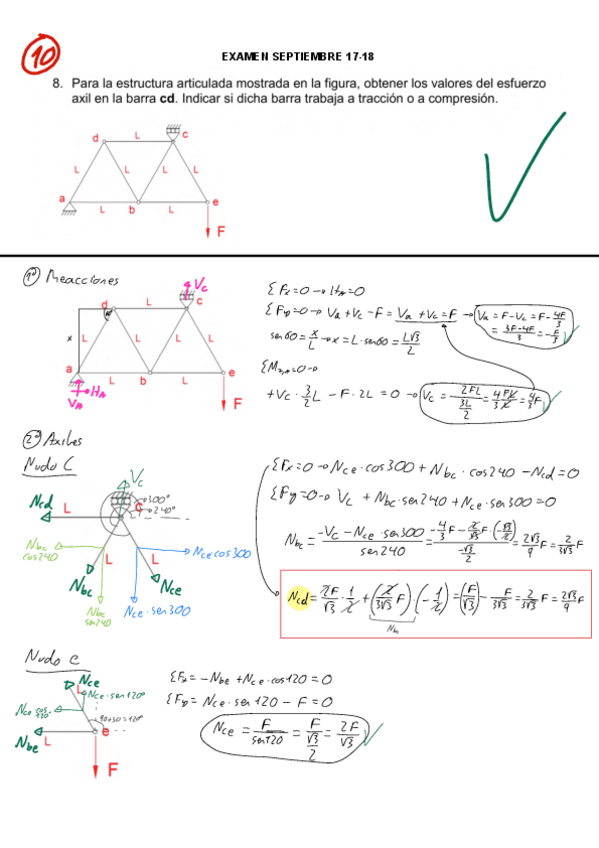 10
EXAMEN SEPTIEMBRE 17-18
8. Para la estructura articulada mostrada en la figura, obtener los valores del esfuerzo
axil en la barra cd. Indicar si dicha barra trabaja a tracción o a compresión.
d L c
L L L L
a L b L e
F
1º) Reacciones
Vc
d L c
x L L L L
a L b L e
HA
VA
F
ΣFx=0 → HA=0
ΣFy=0 → Va + Vc - F = Va + Vc = F → Va = F - Vc = F - 4F/3
= 3F-4F/3 = -F/3
sen60 = x/L → x = L·sen60 = L√3/2
+Vc · 3/2 L - F · 2L = 0 → Vc = 2FL/(3L/2) = 4FL/3L = 4/3 F
2º) Axiles
Nudo C
Vc
300°
240°
Ncd L c
Nbc cos240
Nce cos300
L L
Nbc Nce
Nbc sen240
Nce · sen300
ΣFx=0 → Nce · cos300 + Nbc · cos240 - Ncd = 0
ΣFy=0 → Vc + Nbc · sen240 + Nce · sen300 = 0
Nbc = (-Vc - Nce · sen300)/sen240 = (-4/3 F - 2/√3 F · (-√3/2))/(-√3/2) = 2√3/9 F = 2/3√3 F
Ncd = 2F/√3 · 1/2 + (2/3√3 F) · (-1/2) = (F/√3) - F/3√3 = 2/3√3 F = 2√3/9 F
Nbc
Nudo e
Nce
L Nce · sen120°
Nce cos 120°
90+30=120°
Nbe L e
F
ΣFx = -Nbe + Nce · cos120 = 0
ΣFy = Nce · sen120 - F = 0
Nce = F/sen120 = F/(√3/2) = 2F/√3